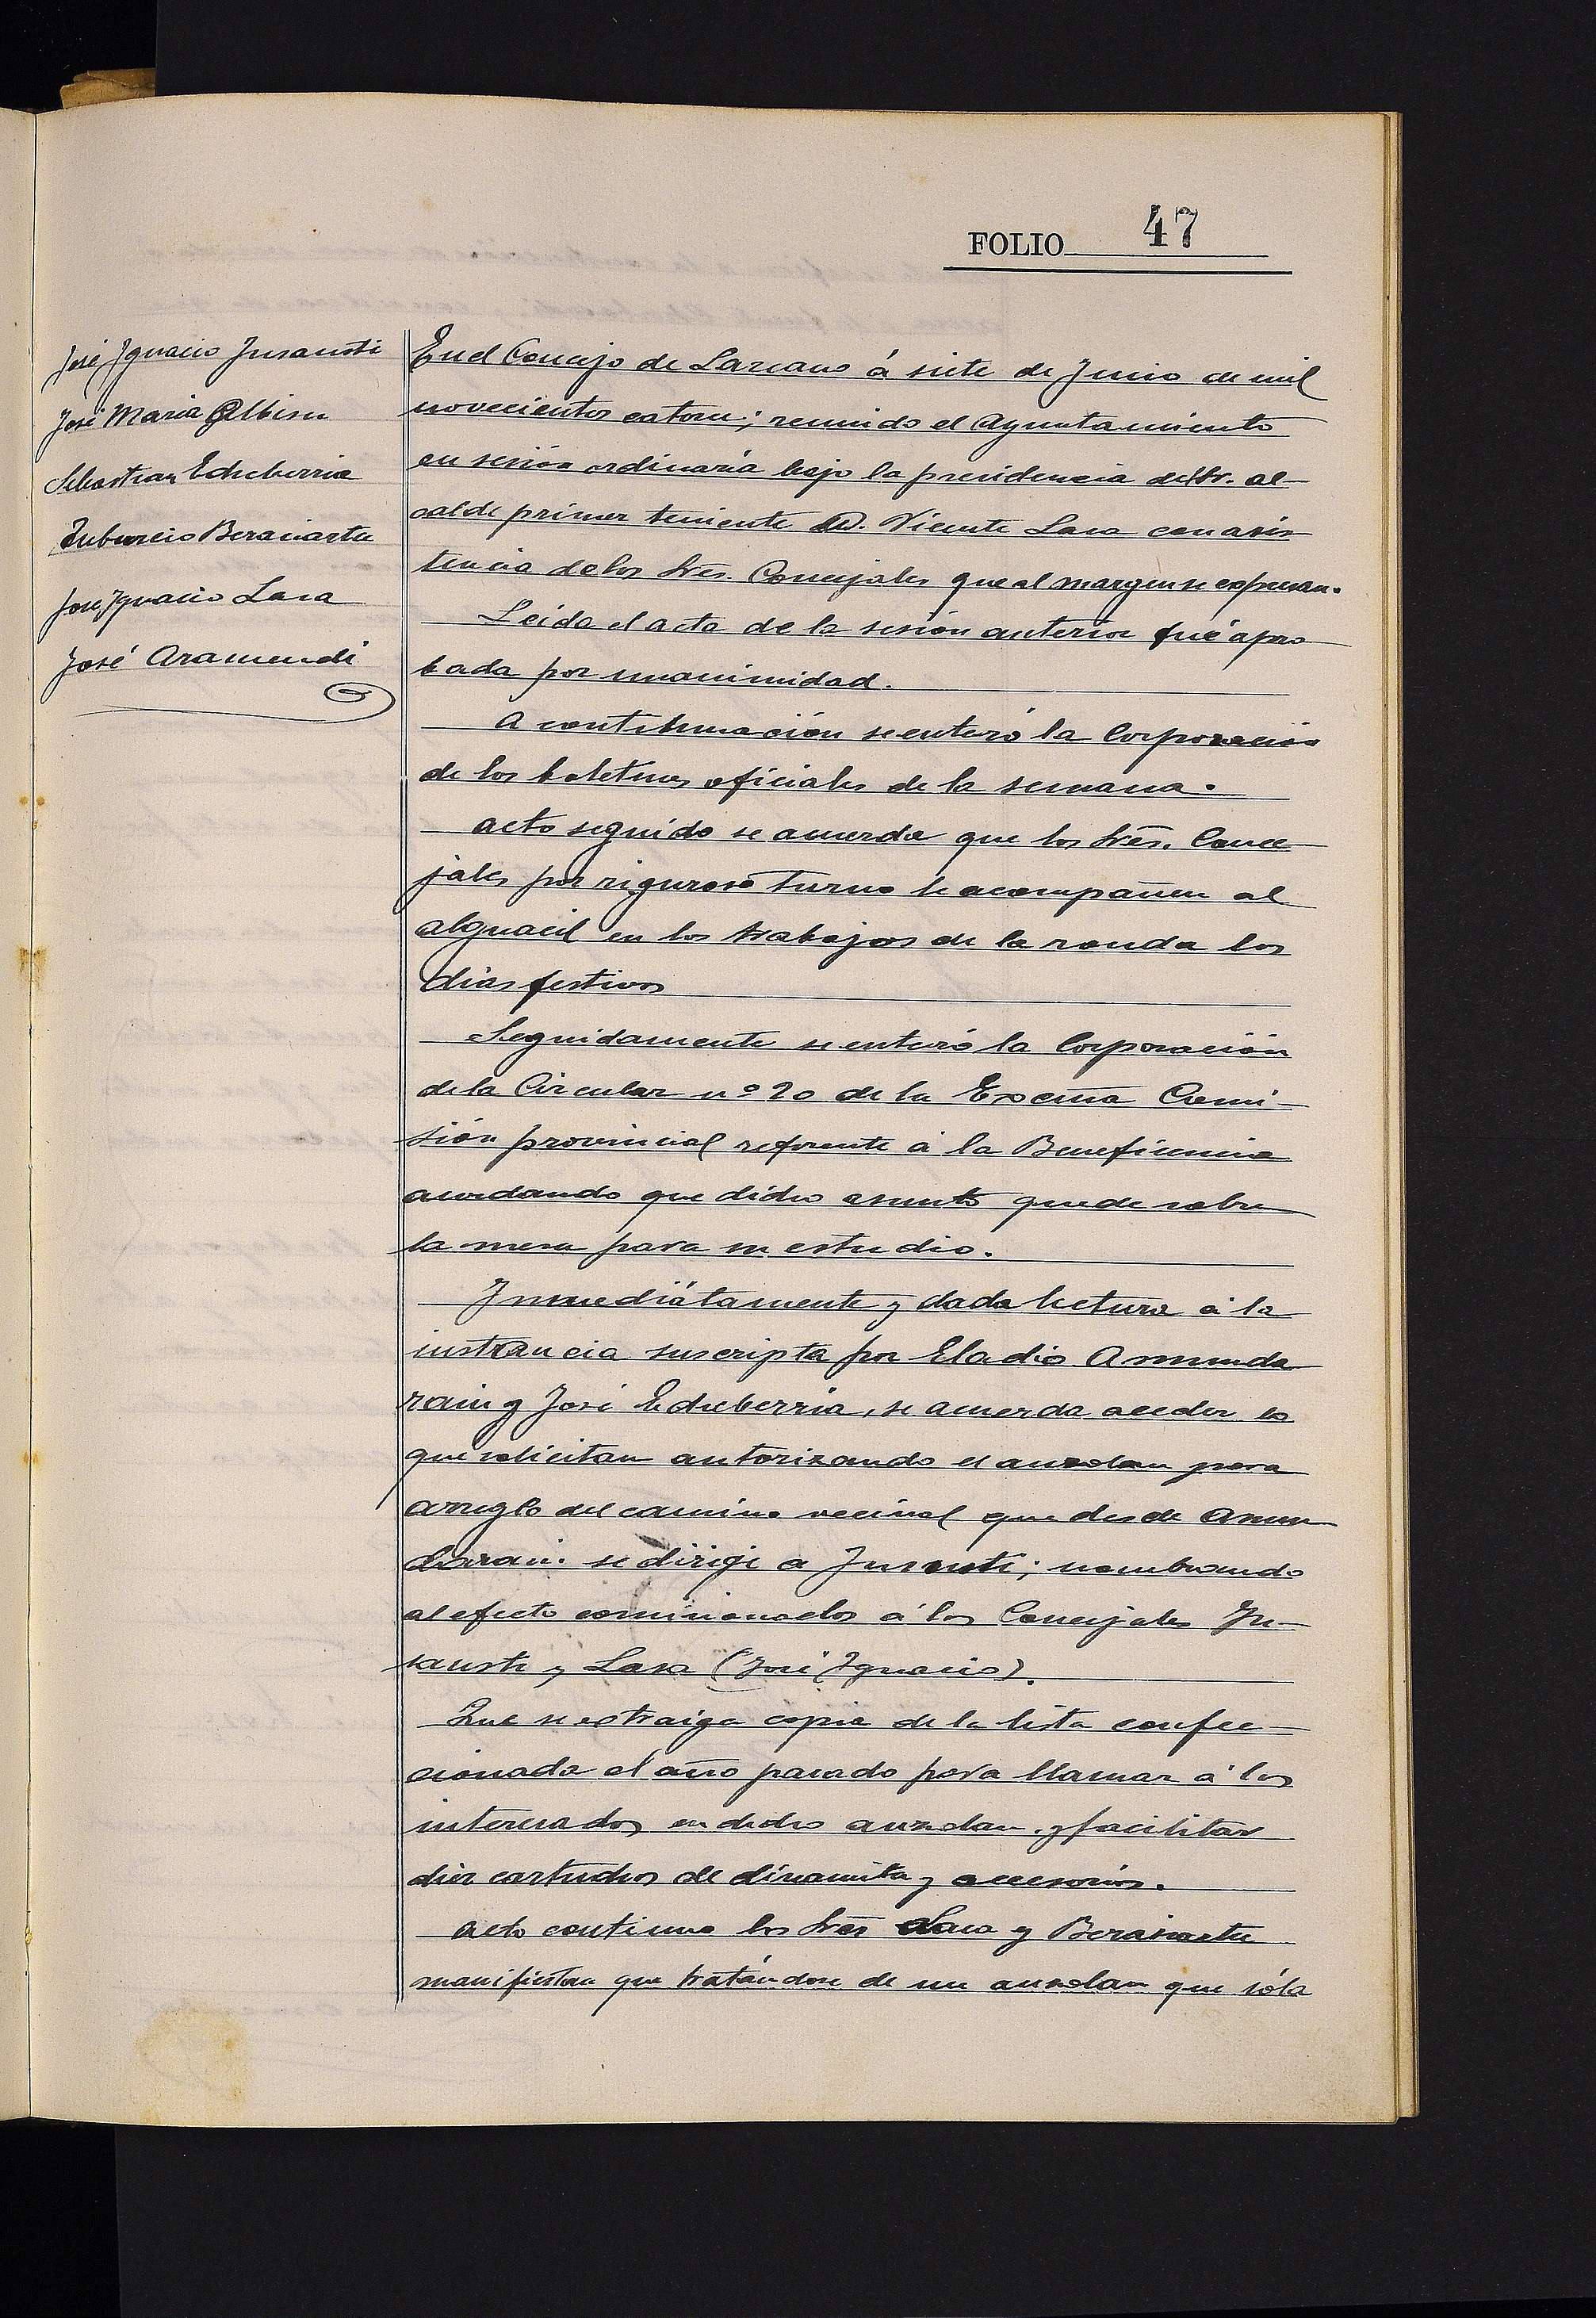 FOLIO 47
José Ignacio Insausti
José Maria Albisu
Sebastian Echeberria
Tiburcio Beraiartu
José Ignacio Lasa
José Aramendi
En el Concejo de Lazcano á siete de Junio de mil
novecientos catorce; reunido el Ayuntamiento
en sesión ordinaria bajo la presidencia del Sr. al-
calde primer teniente D. Vicente Lasa con asis
tencia de los Srēs. Concejales que al margen se expresan.
Leída el acta de la sesión anterior fué apro
bada por unanimidad.
A continuación se enteró la Corporación
de los boletines oficiales de la semana.
Acto seguido se acuerda que los Srēs. Conce-
jales por riguroso turno le acompañen al
alguacil en los trabajos de la ronda los
días festivos
Seguidamente se enteró la Corporación
de la Circular nº 20 de la Excma Comi-
sión provincial referente á la Beneficencia
acordando que dicho asunto quede sobre
la mesa para su estudio.
Inmediátamente y dada lectura á la
instancia suscripta por Eladio Amunda
rain y José Echeberria, se acuerda acceder lo
que solicitan autorizando el auzolan para
arreglo del camino vecinal que desde Amun
darain se dirige a Insausti; nombrando
al efecto comisionados á los Concejales In-
sausti y Lasa (José Ignacio).
Que se extraiga copia de la lista confec-
cionada el año pasado para llamar á los
interesados en dicho auzolan y facilitar
diez cartuchos de dinamita y accesorios.
Acto continuo los Srēs Lasa y Beraiartu
manifiestan que tratándose de un auzolan que sóla